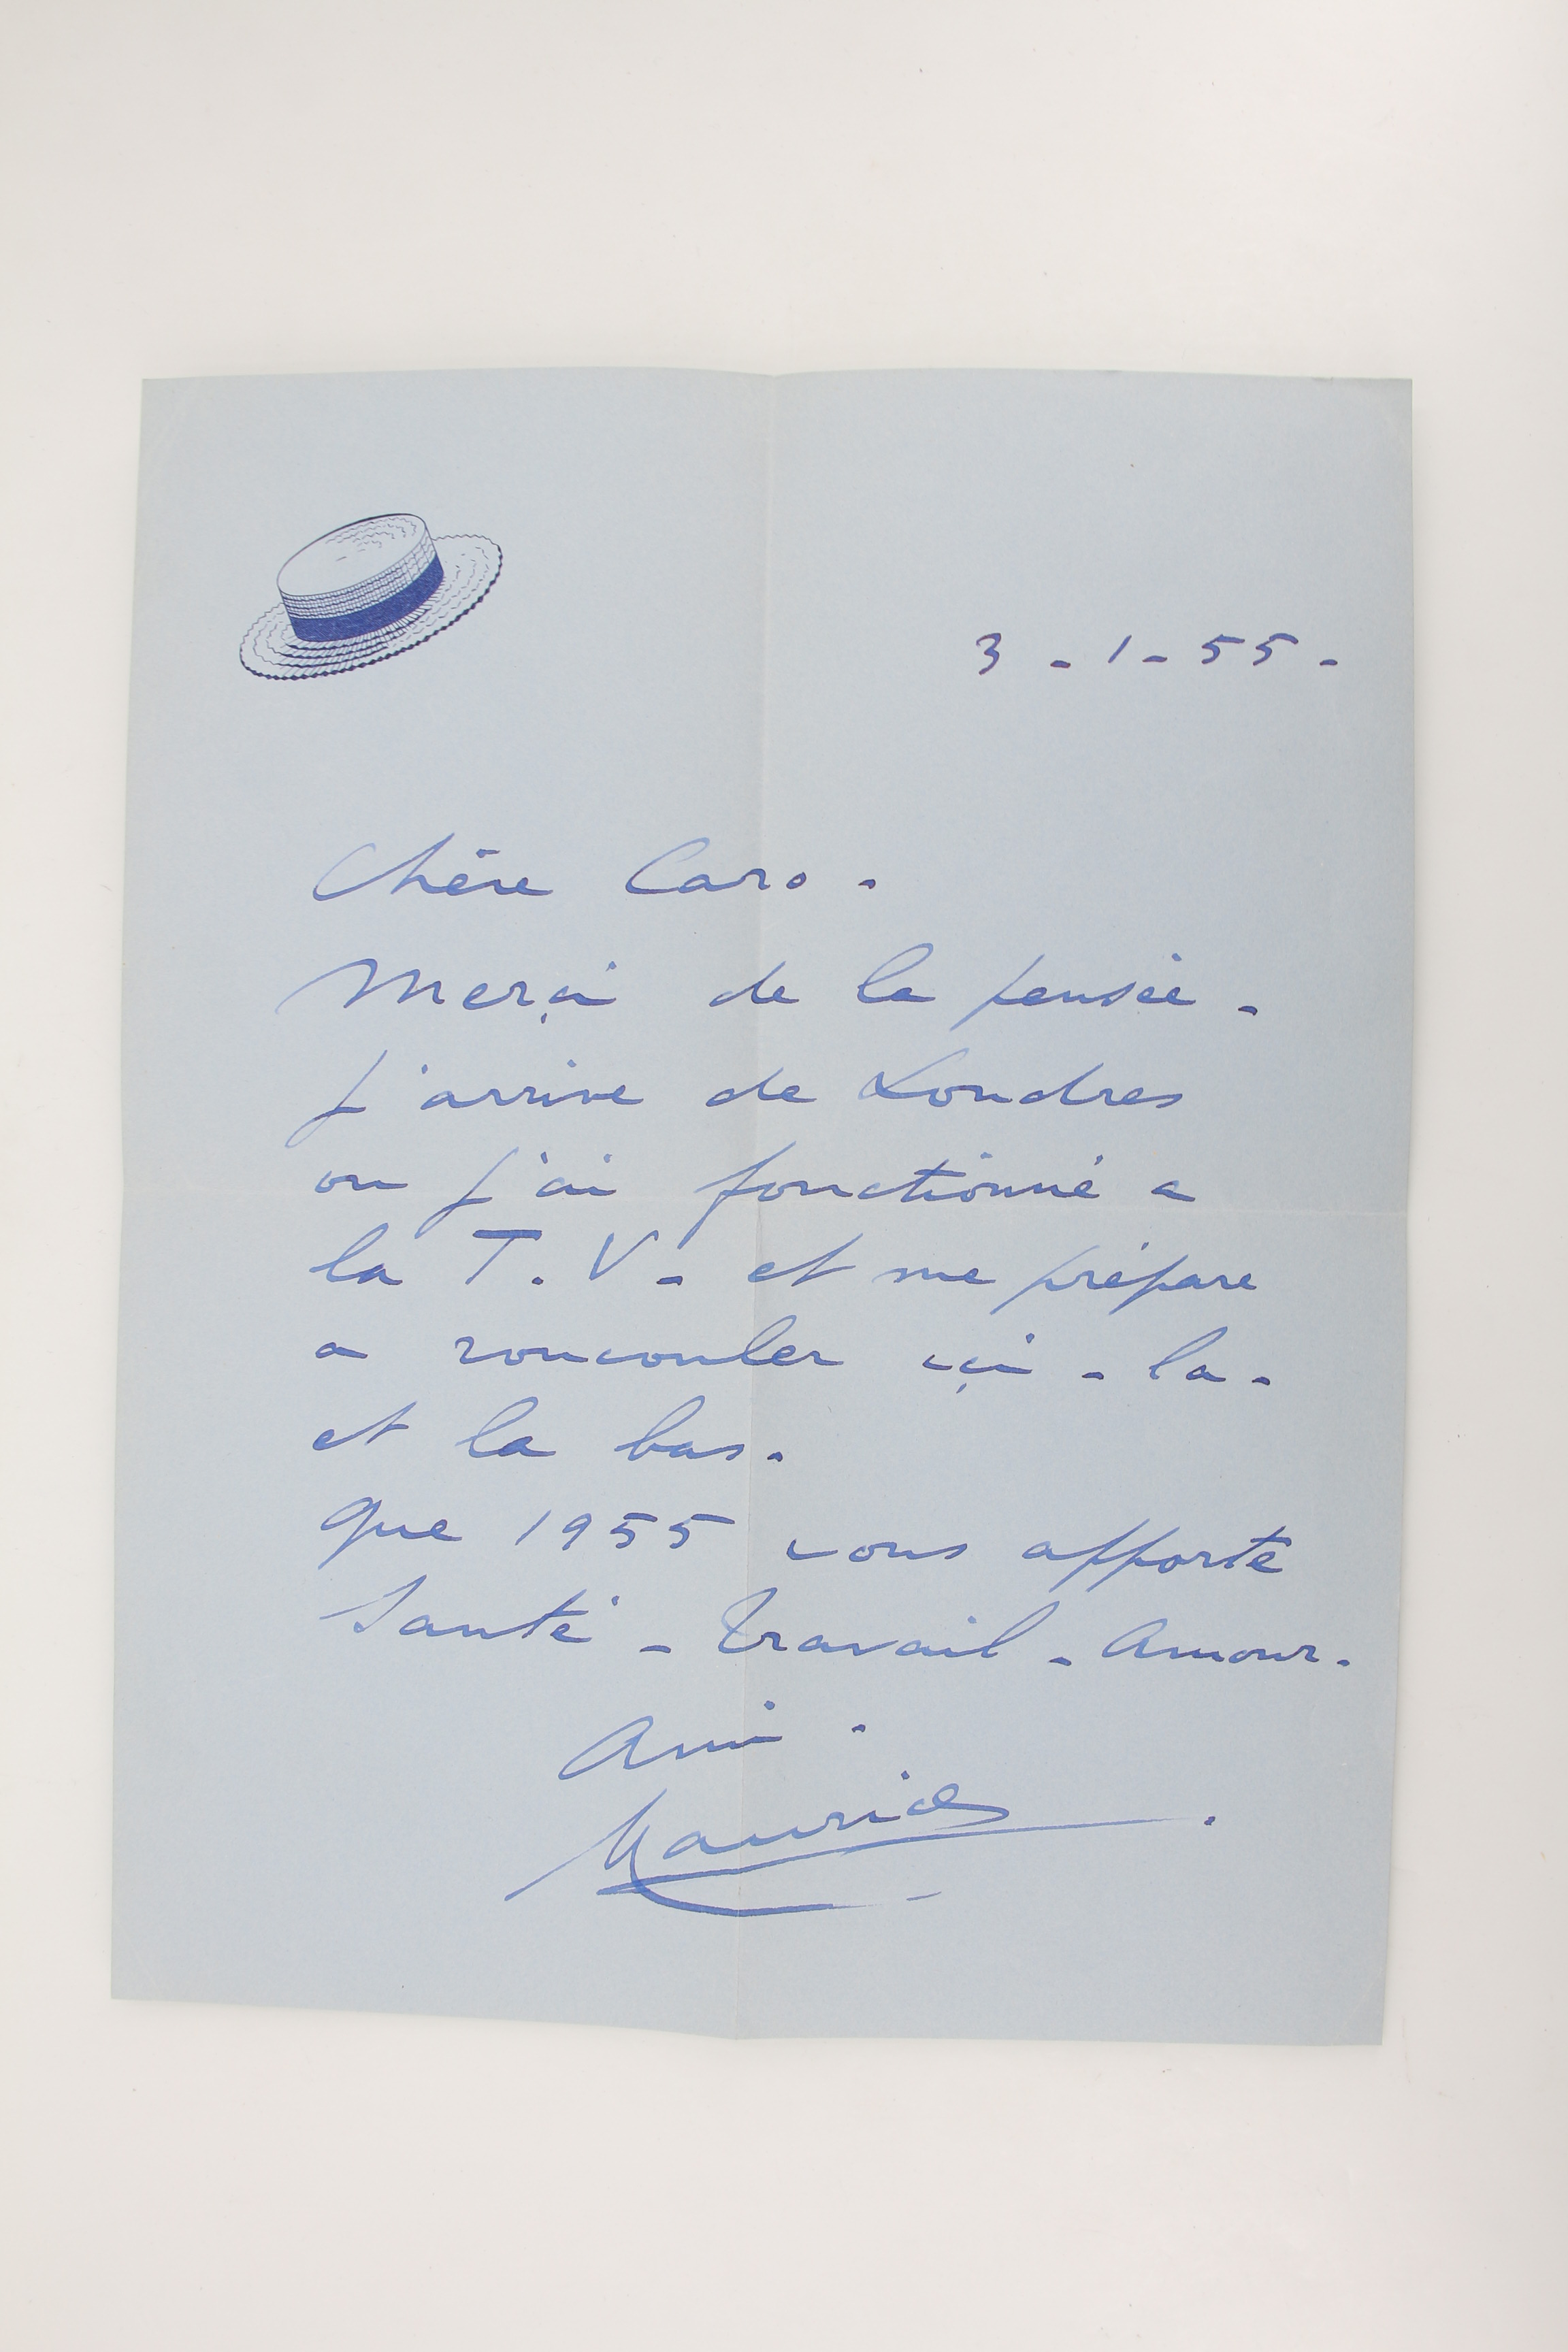 3 - 1 - 55 -
Chère Caro .
Merçi de la pensée -
J'arrive de Londres
ou j'ai fonctionné a
la T. V - et me prépare
a roucouler içi - la -
et la bas .
Que 1955 vous apporte
Santé - Travail - Amour .
Ami .
Maurice